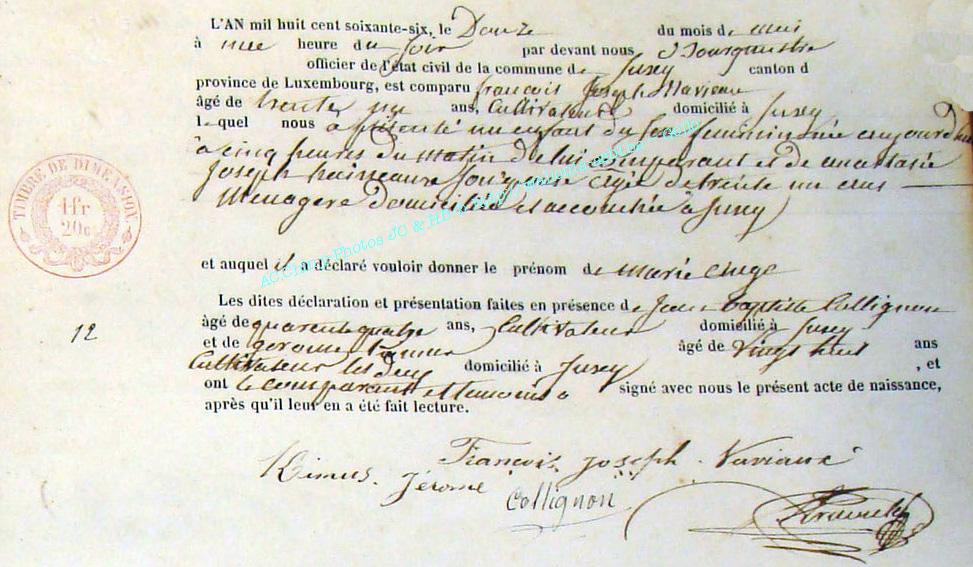 L'AN mil huit cent soixante-six, le Douze du mois de mai
à une heure du soir par devant nous Bourgmestre
officier de l'état civil de la commune de Juzey canton d
province de Luxembourg, est comparu françois Joseph Naviaux
âgé de trente un ans, Cultivateur domicilié à Juzey
l quel nous a présenté un enfant du sexe feminin née aujourd'hui
à cinq heures du matin de lui Comparant et de anastasie
joseph son épouse agée de trente un ans
Menagère domiciliée et accouchée a Juzey
TIMBRE DE DIMENSION
1fr
20c
et auquel il a déclaré vouloir donner le prénom de marie
Les dites déclaration et présentation faites en présence de Jean baptiste Collignon
12
âgé de quarente quatre ans, Cultivateur domicilié à Juzey
et de gerome kimus âgé de vingt huit ans
Cultivateur les deux domicilié à Juzey , et
ont le Comparant et temoins signé avec nous le présent acte de naissance,
après qu'il leur en a été fait lecture.
François joseph Naviaux
Kimus Jérome
Collignon